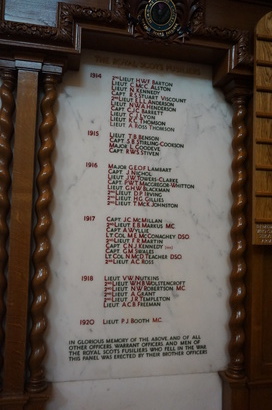 THE ROYAL SCOTS FUSILIERS
1914 2ND LIEUT H.W.F. BARTON
LIEUT C. MCC. ALSTON
LIEUT N. KENNEDY
CAPT F.E. STUART VISCOUNT
2ND LIEUT E.L.L. ANDERSON
LIEUT N.W.A. HENDERSON
CAPT C.J.C. BARRETT
LIEUT C.J. LYON
LIEUT K.C. THOMSON
LIEUT A. ROSS THOMSON
1915 LIEUT T.B. BENSON
CAPT S.B. STIRLING-COOKSON
MAJOR L. GOODEVE
CAPT R.W.S. STIVEN
1916 MAJOR GEO F. LAMBERT
CAPT J. NICHOL
LIEUT J.W. TOWERS-CLARKE
CAPT F.W.T. MACGREGOR-WHITTON
LIEUT G.H.W. BLACKMAN
2ND LIEUT D.F. IRVING
2ND LIEUT H.G. GILLIES
2ND LIEUT T. MCK. JOHNSTON
1917 CAPT J.C. MCMILLAN
2ND LIEUT E.R. MARKUS MC
CAPT A. WYLLIE
LT COL M.E. MCCONAGHEY DSO
2ND LIEUT F.R. MARTIN
CAPT C.N.J. KENNEDY
CAPT G.M. SKALES
LT COL N. MCD TEACHER DSO
2ND LIEUT A.C. ROSS
1918 LIEUT V.W. NUTKINS
2ND LIEUT W.H.B. WOLSTENCROFT
2ND LIEUT N.W. ROBERTSON MC
2ND LIEUT A. GRANT
2ND LIEUT J.R. TEMPLETON
LIEUT A.C.B. FREEMAN
1920 LIEUT P.J. BOOTH MC
IN GLORIOUS MEMORY OF THE ABOVE AND OF ALL
OTHER OFFICERS, WARRANT OFFICERS AND MEN OF
THE ROYAL SCOTS FUSILIERS WHO FELL IN THE WAR
THIS PANEL WAS ERECTED BY THEIR BROTHER OFFICERS